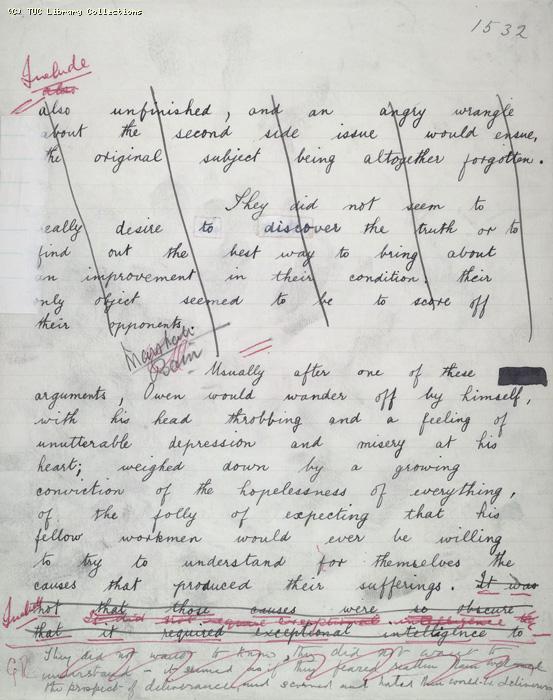 (C) TUC Library Collections
1532
Include
also
also unfinished, and an angry wrangle
about the second side issue would ensue,
the original subject being altogether forgotten.
They did not seem to
eally desire to discover the truth or to
find out the best way to bring about
an improvement in their condition. their
only object seemed to be to score off
their opponents.
Usually after one of these
arguments, Owen would wander off by himself,
with his head throbbing and a feeling of
unutterable depression and misery at his
heart; weighed down by a growing
conviction of the hopelessness of everything,
of the folly of expecting that his
fellow workmen would ever be willing
to try to understand for themselves the
causes that produced their sufferings. It was
not that those causes were so obscure
It did not require exceptional intelligence to
that it required exceptional intelligence to
They did not want to know, they did not want to
understand - it seemed as if they feared rather than welcomed
the prospect of deliverance and scorned and hated their would-be deliverers